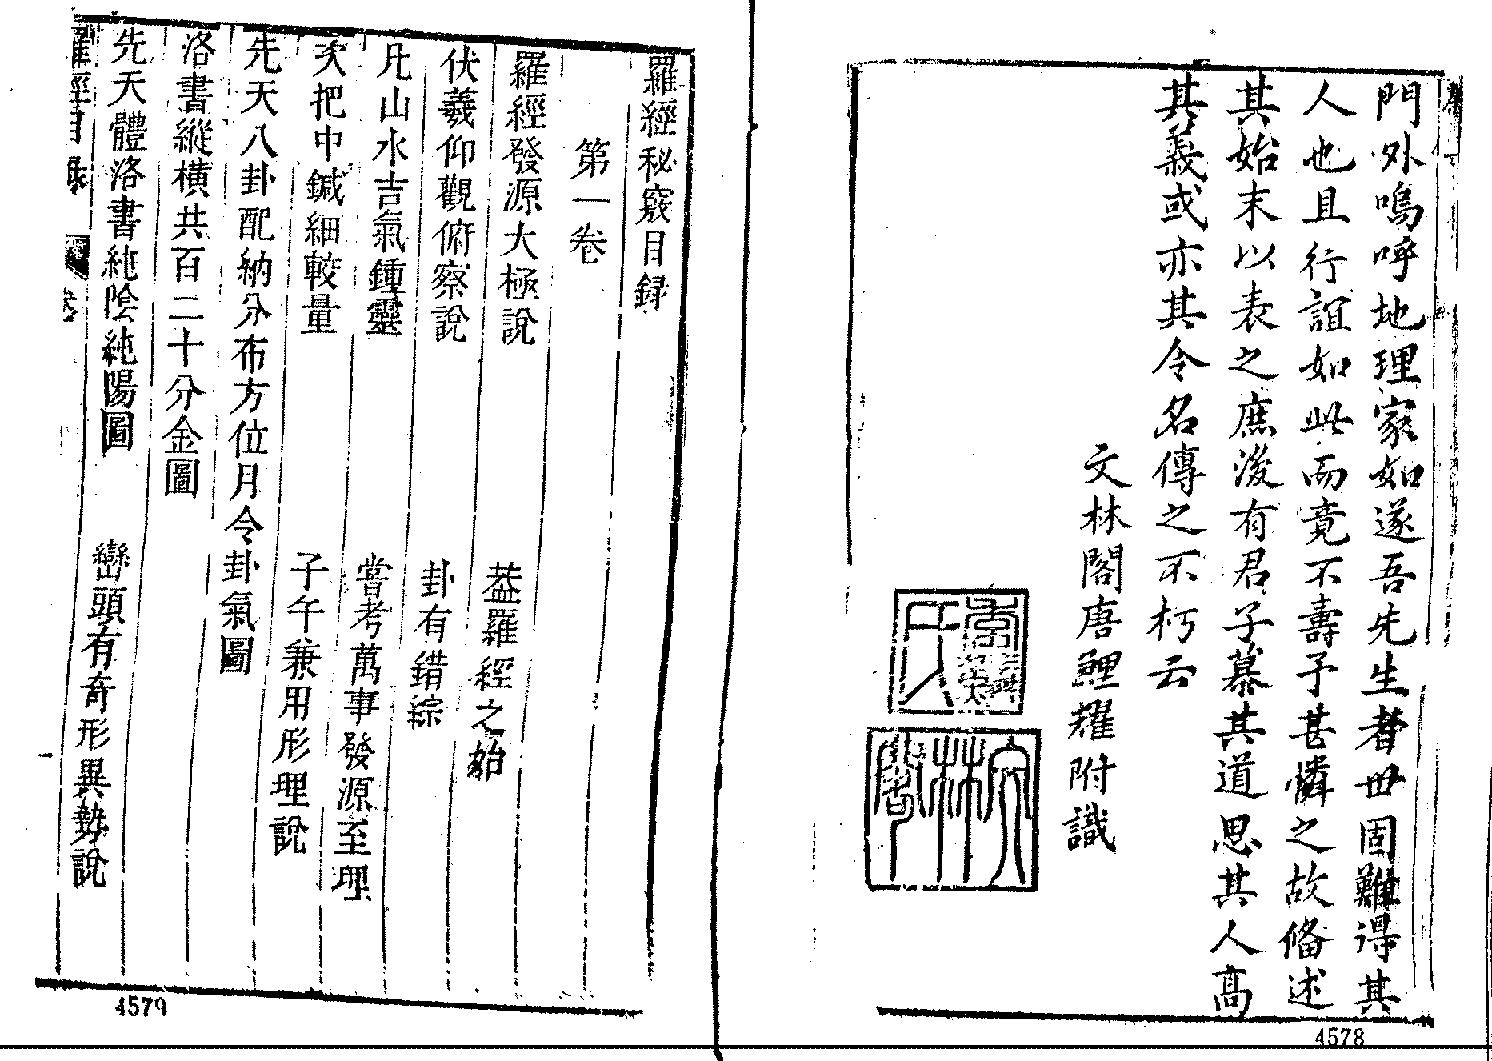 門外嗚呼地理家如遂吾先生者世固難得其
人也且行誼如此而竟不壽予甚憐之故備述
其始末以表之庶後有君子慕其道思其人高
其義或亦其令名傳之不朽云
文林閣唐鯉耀附識
文林閣
4578
羅經秘竅目録
第一卷
羅經發源太極說
葢羅經之始
伏羲仰觀俯察說
卦有錯綜
凡山水吉氣鍾靈
嘗考萬事發源至理
次把中鍼細較量
子午兼用形理說
先天八卦配納分布方位月令卦氣圖
洛書縱橫共百二十分金圖
先天體洛書純陰純陽圖
巒頭有奇形異勢說
羅經目録
4579